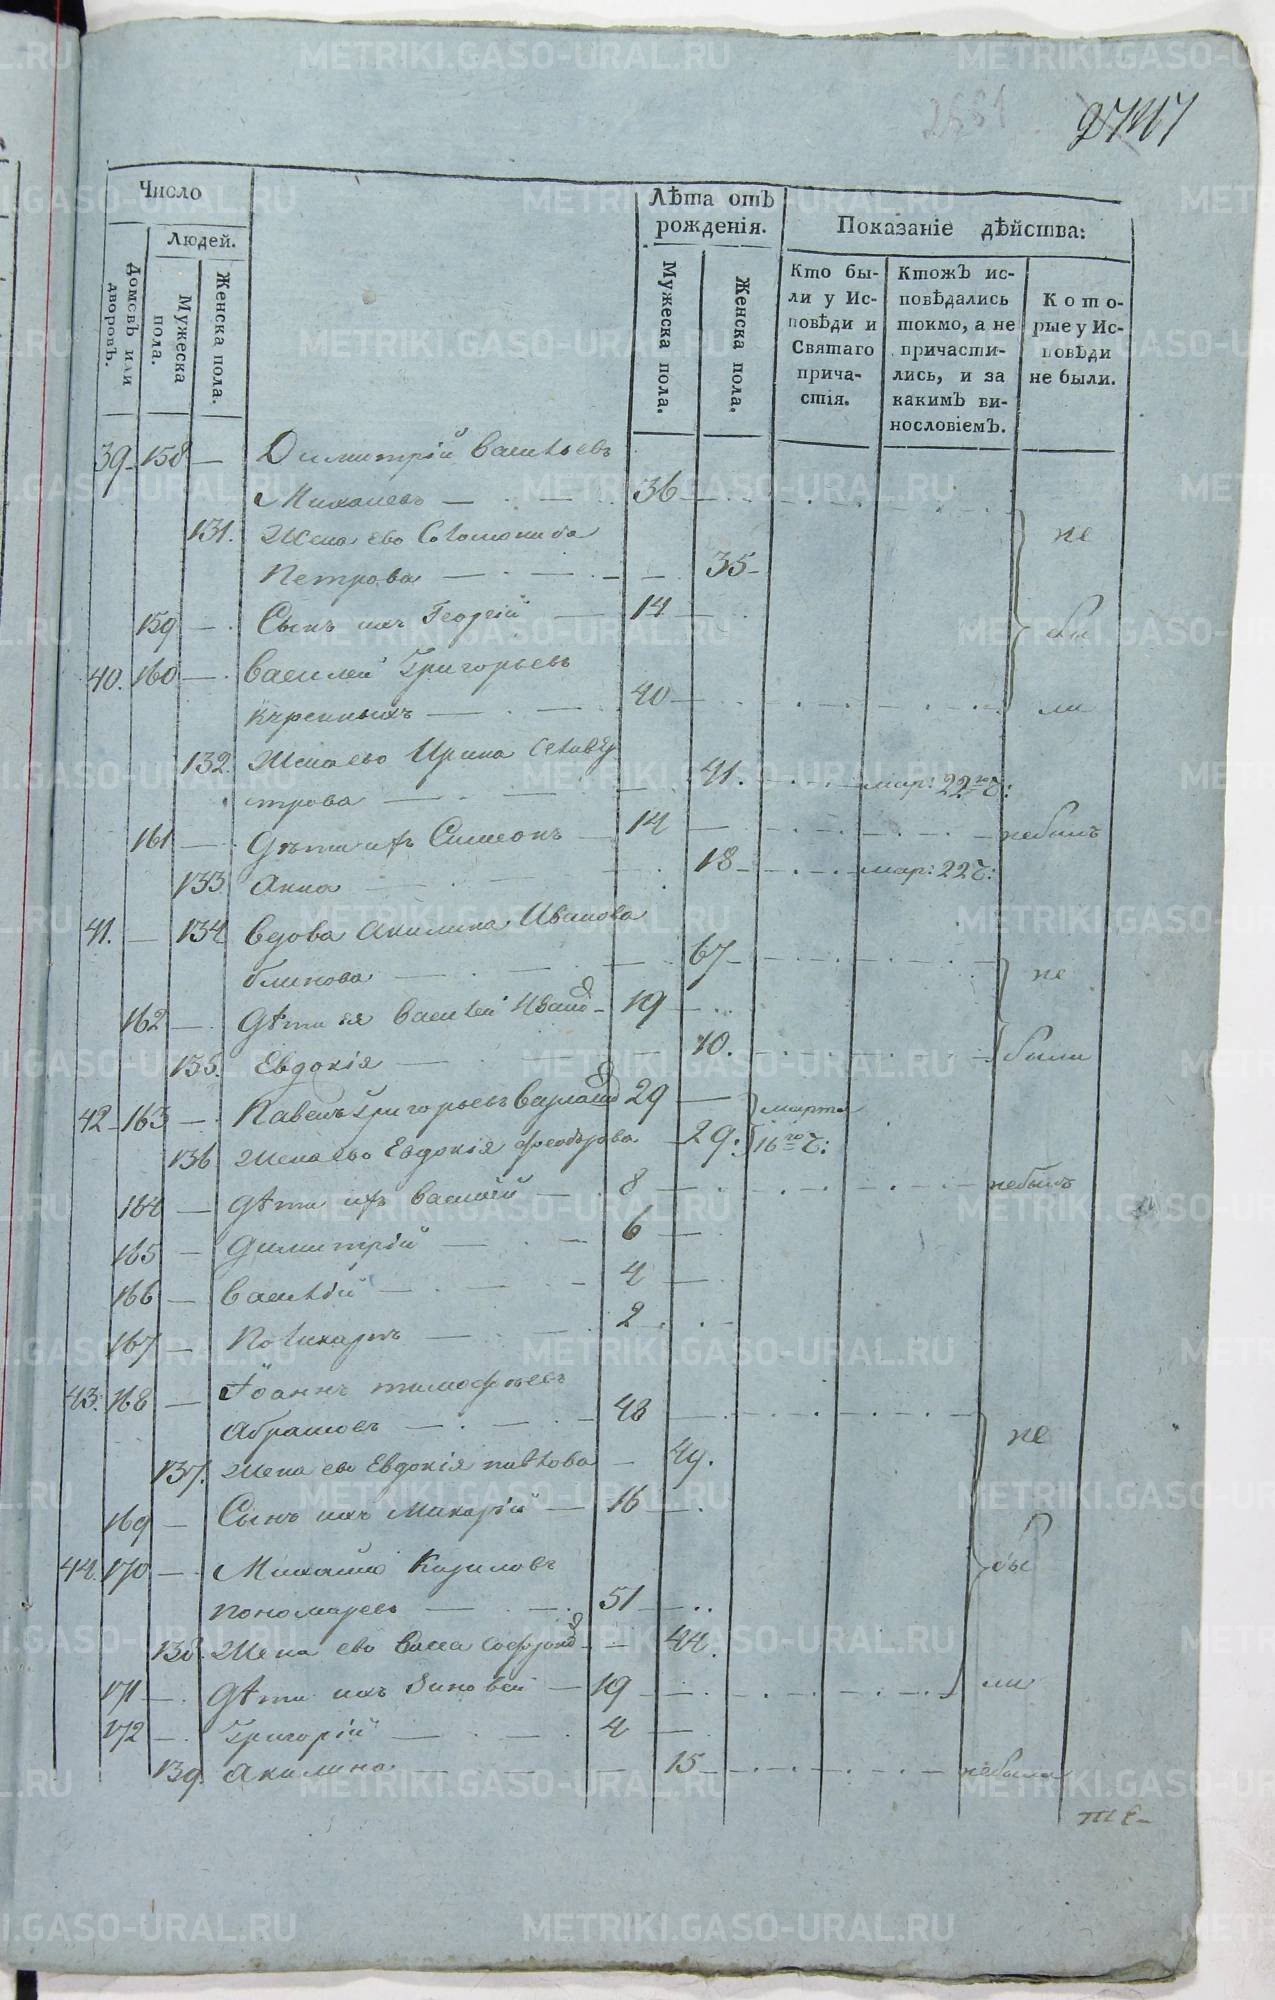 2681
Число
Людей.
Домовъ или дворовъ.
Мужеска пола.
Женска пола.
Лѣта отъ рожденія.
Мужеска пола.
Женска пола.
Показаніе дѣйства:
Кто бы-
ли у Ис-
повѣди и
Святаго
прича-
стія.
Ктожъ ис-
повѣдались
токмо, а не
причасти-
лись, и за
какимъ ви-
нословіемъ.
Кото-
рые у Ис-
повѣди
не были.
39 158 — Димитрій Васильевъ
Михалевъ — 36
131. Жена ево Соломонида не
Петрова — 35
159 — Сынъ ихъ Георгій — 14 бы
40. 160 — Василей Григорьевъ
— 40 ли
132. Жена ево Ирина Селивер
строва — 41. мар: 22го ч:
161 — Дѣти ихъ Симеонъ — 14 небылъ
133 Анна — 18 мар: 22 ч:
41. — 134 Вдова Акилина Иванова
Блинова — 67 не
162 — Дѣти ея Василей Иванов — 19
135. Евдокія — 10. были
42 163 — Павелъ Григорьевъ 29 марта
136 Жена ево Евдокія Феодорова 29. 16го ч:
164 — Дѣти ихъ Василій — 8 небылъ
165 — Димитрій — 6
166 — Василій — 4
167 — Поликарпъ — 2
43. 168 — Іоаннъ Тимофѣевъ
Абрамовъ — 48 не
137. Жена ево Евдокія Павлова — 49.
169 — Сынъ ихъ Макарій — 16
44. 170 — Михайло Кириловъ бы
Пономаревъ — 51
138. Жена ево Васса Софронов — 44.
171 — Дѣти ихъ Зиновей — 19 ли
172 — Григорій — 4
139. Акилина — 15 небыла
METRIKI.GASO-URAL.RU